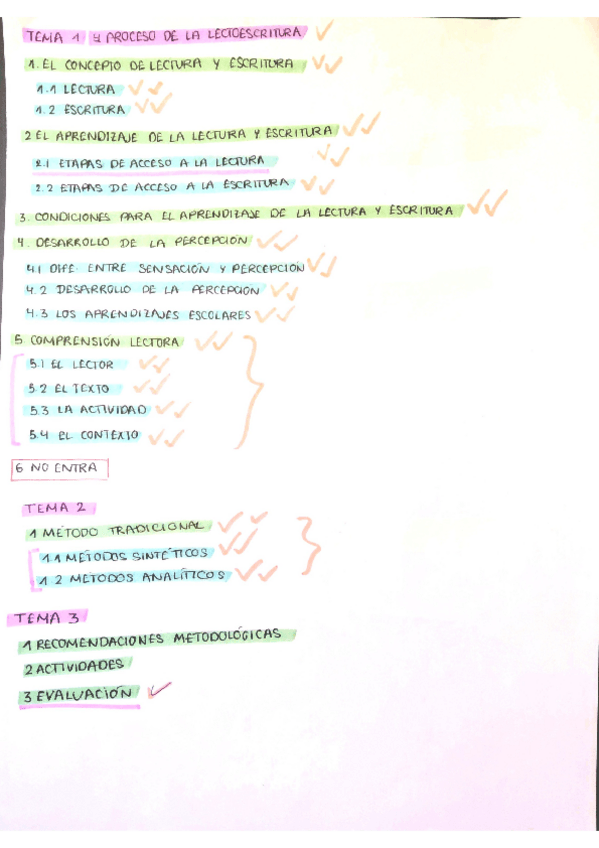 TEMA 1 EL PROCESO DE LA LECTOESCRITURA
1. EL CONCEPTO DE LECTURA Y ESCRITURA
1.1 LECTURA
1.2 ESCRITURA
2 EL APRENDIZAJE DE LA LECTURA Y ESCRITURA
2.1 ETAPAS DE ACCESO A LA LECTURA
2.2 ETAPAS DE ACCESO A LA ESCRITURA
3. CONDICIONES PARA EL APRENDIZAJE DE LA LECTURA Y ESCRITURA
4. DESARROLLO DE LA PERCEPCIÓN
4.1 DIFE. ENTRE SENSACIÓN Y PERCEPCIÓN
4.2 DESARROLLO DE LA PERCEPCIÓN
4.3 LOS APRENDIZAJES ESCOLARES
5 COMPRENSIÓN LECTORA
5.1 EL LECTOR
5.2 EL TEXTO
5.3 LA ACTIVIDAD
5.4 EL CONTEXTO
6 NO ENTRA
TEMA 2
1 MÉTODO TRADICIONAL
1.1 MÉTODOS SINTÉTICOS
1.2 MÉTODOS ANALÍTICOS
TEMA 3
1 RECOMENDACIONES METODOLÓGICAS
2 ACTIVIDADES
3 EVALUACIÓN